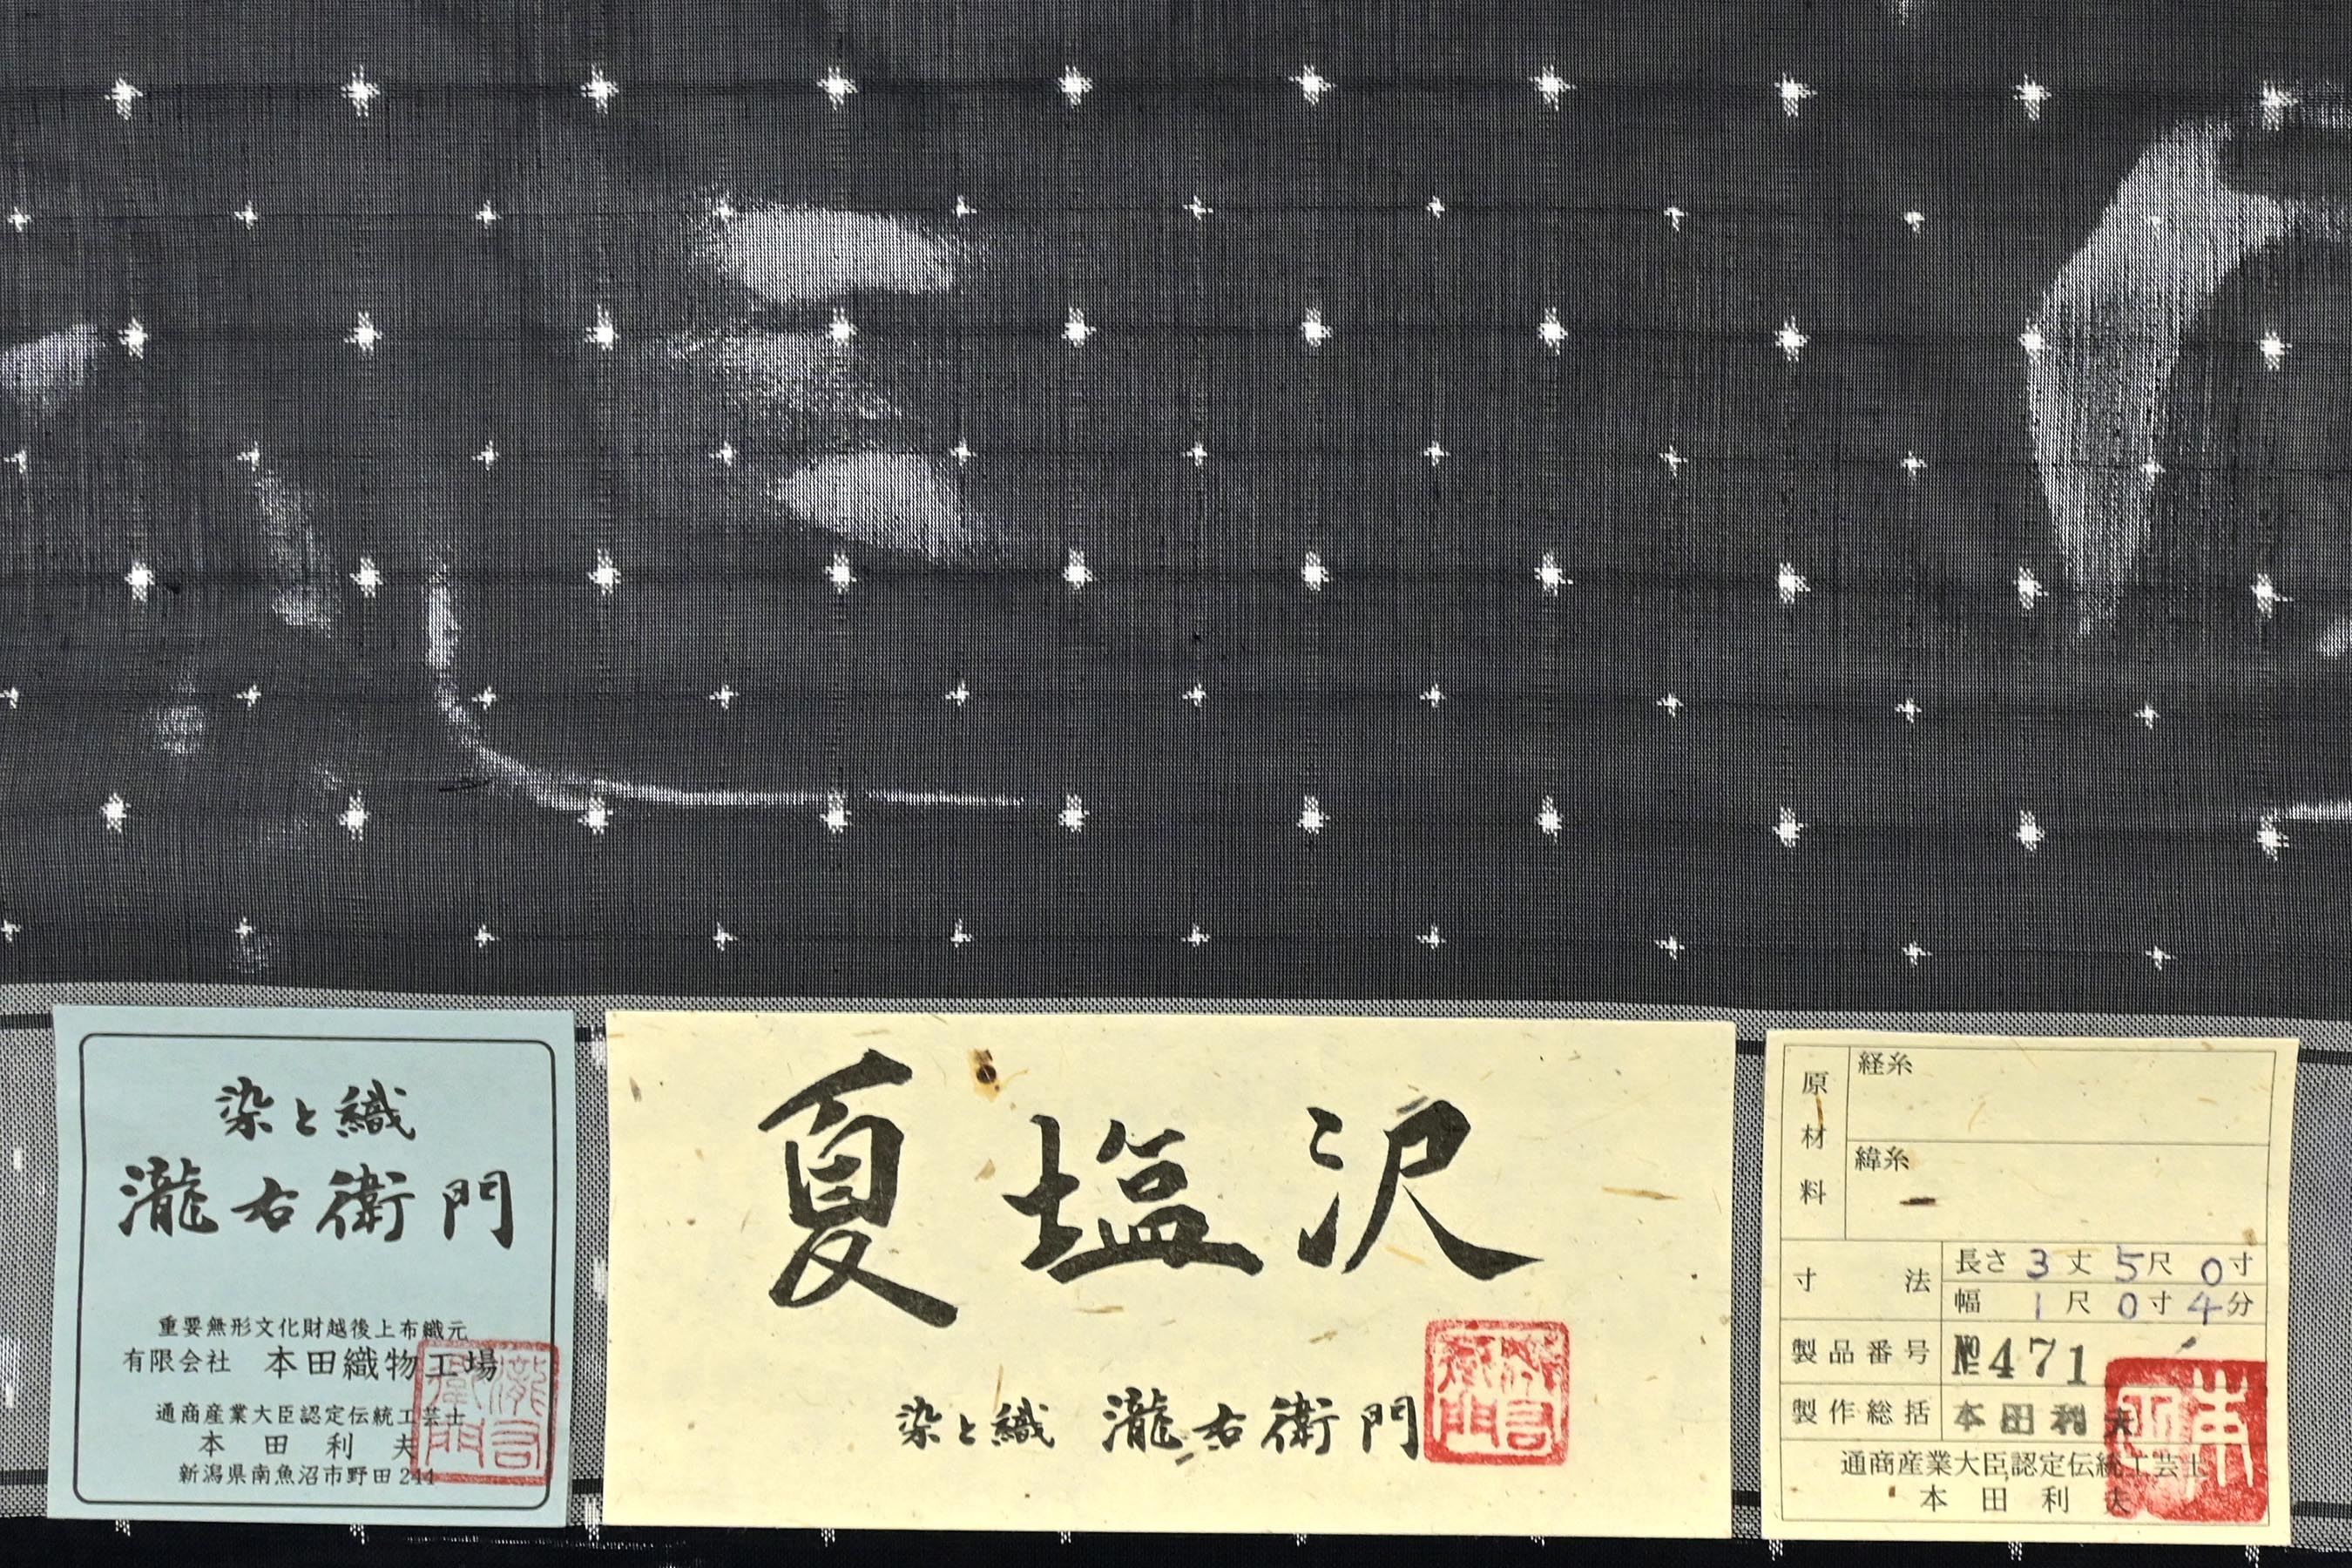 染と織
瀧右衛門
重要無形文化財越後上布織元
有限会社 本田織物工場
通商産業大臣認定伝統工芸士
本田利夫
新潟県南魚沼市野田244
夏塩沢
染と織 瀧右衛門
瀧右衛門
原材料
経糸
緯糸
寸法
長さ 3丈 5尺 0寸
幅 1尺 0寸 4分
製品番号 №471
製作総括 本田利夫
通商産業大臣認定伝統工芸士
本田利夫